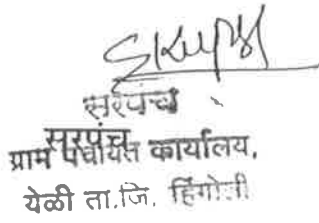 सरपंच
सरपंच
ग्राम पंचायत कार्यालय,
येळी ता.जि. हिंगोली